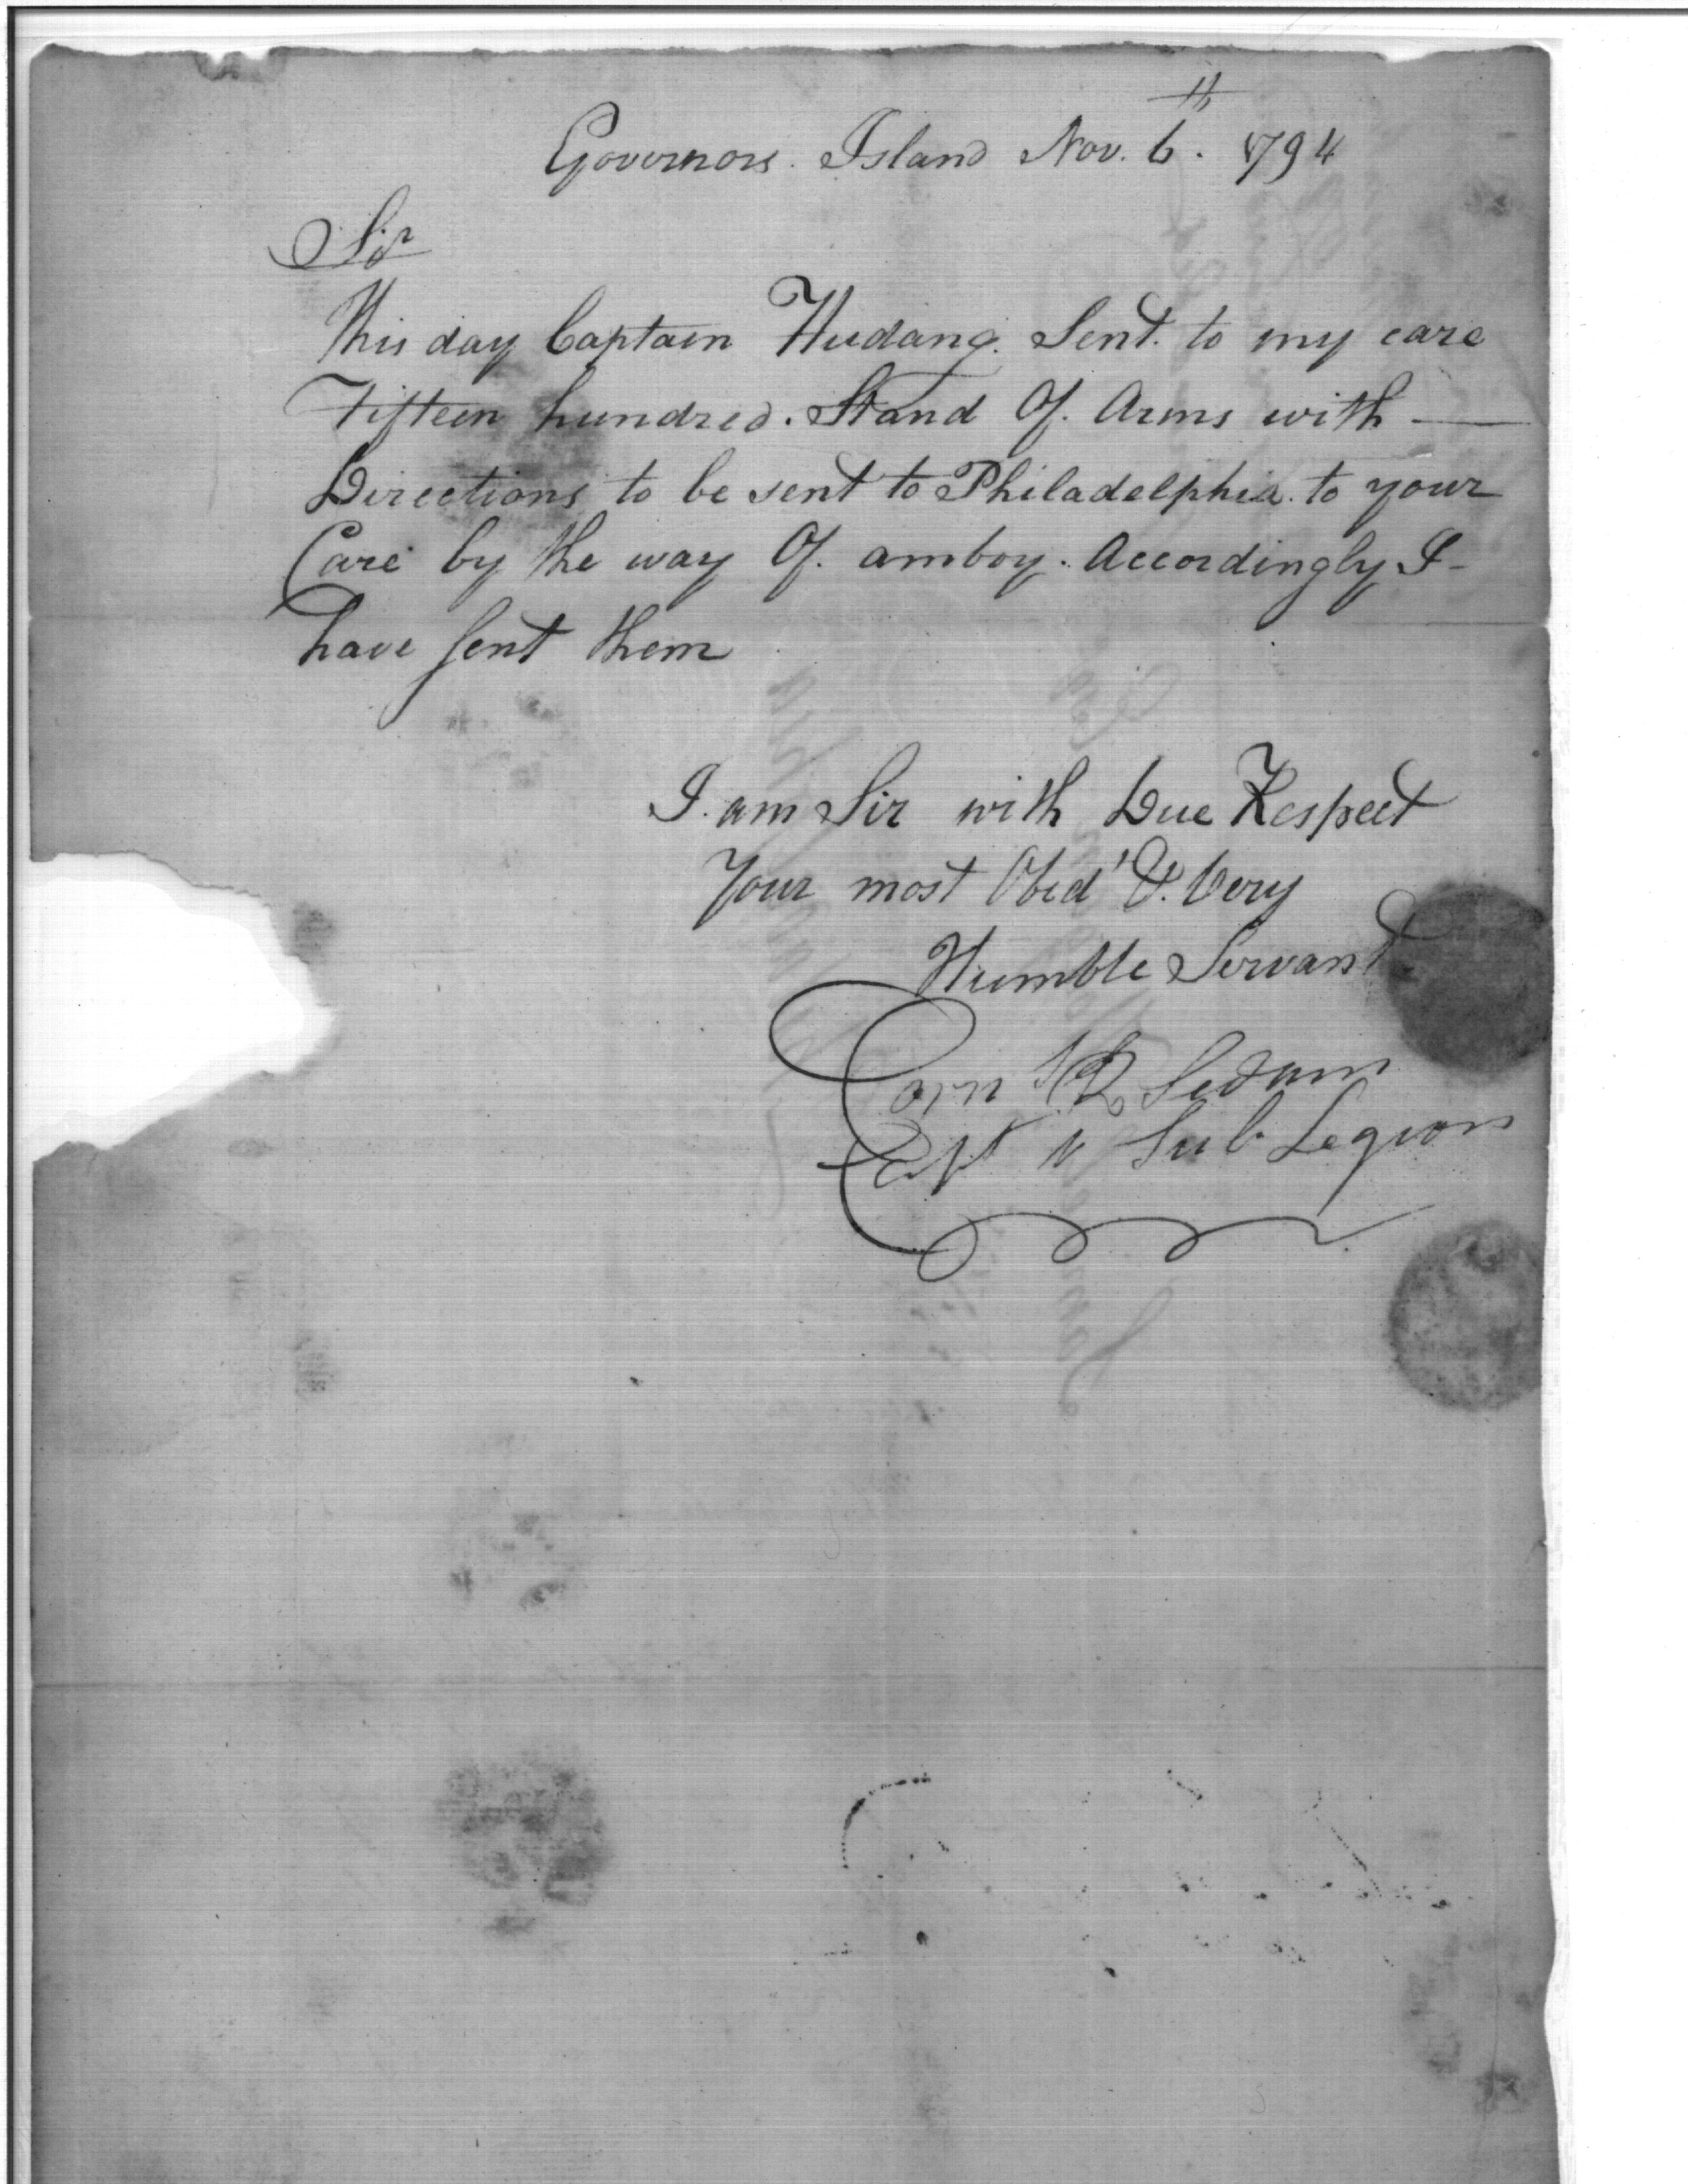 Governors. Island Nov. 6th. 1794
Sir
This day Captain Hudang. Sent. to my care
Fifteen hundred. Stand Of. Arms with —
Directions to be sent to Philadelphia. to your
Care by the way Of. amboy. Accordingly I -
have sent them
I. am Sir with Due Respect
Your most Obed' &. Very
Humble Servant
Corn R Sedam
Capt Sub Legion